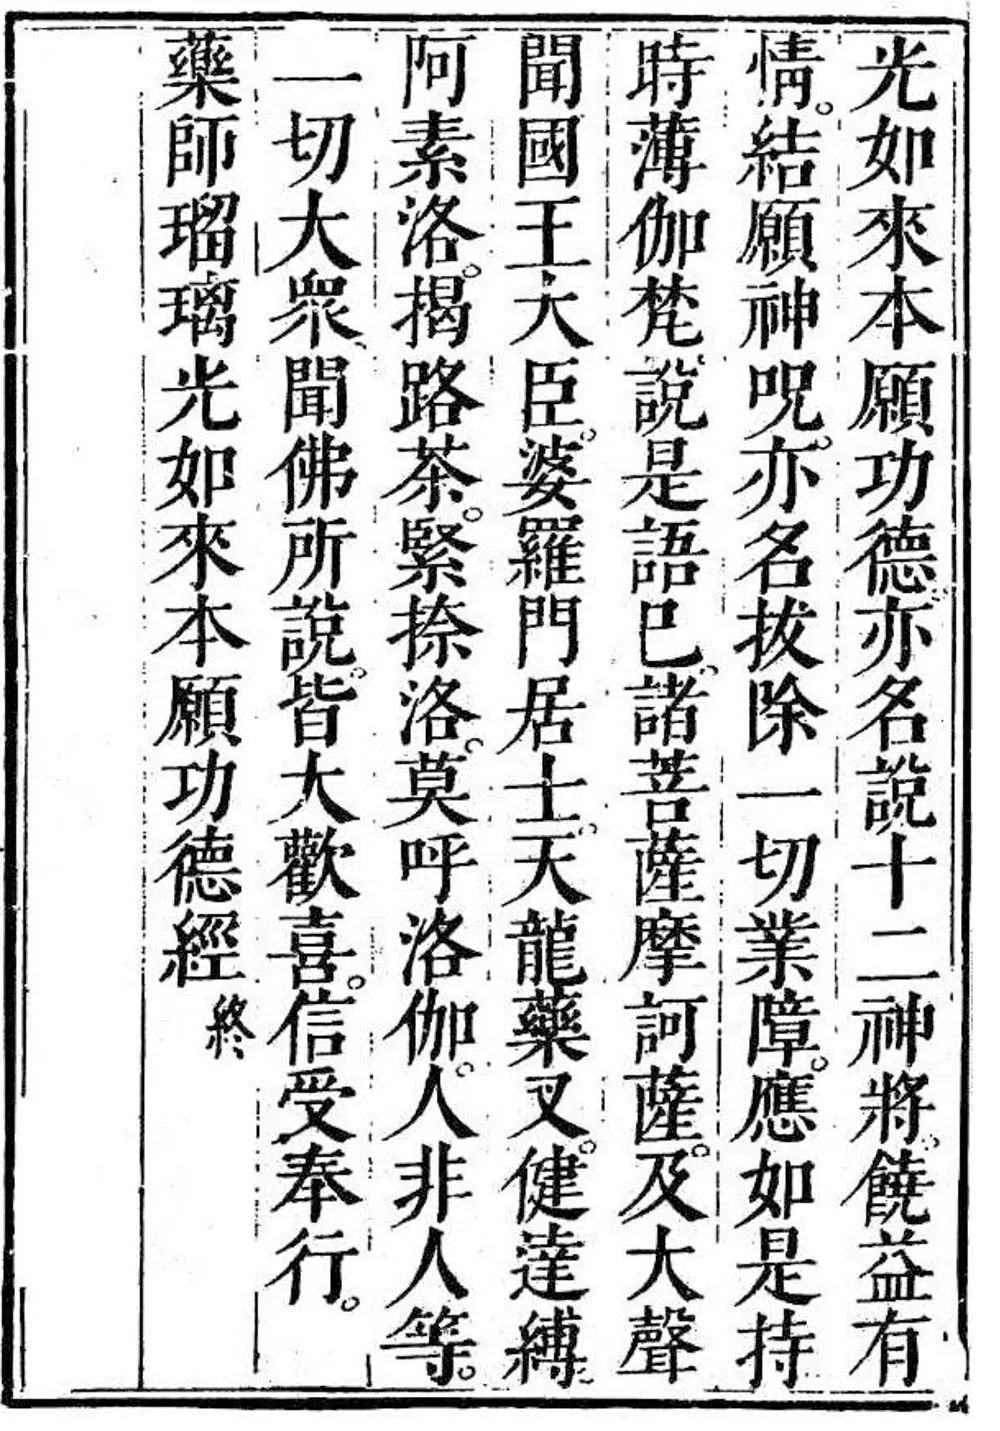 光如來本願功德。亦名說十二神將。饒益有
情。結願神呪。亦名拔除一切業障。應如是持
時薄伽梵。說是語巳。諸菩薩摩訶薩。及大聲
聞國王大臣。婆羅門居士。天龍藥叉。健達縛
阿素洛。揭路茶。緊捺洛。莫呼洛伽。人非人等。
一切大衆。聞佛所說。皆大歡喜。信受奉行。
藥師瑠璃光如來本願功德經終